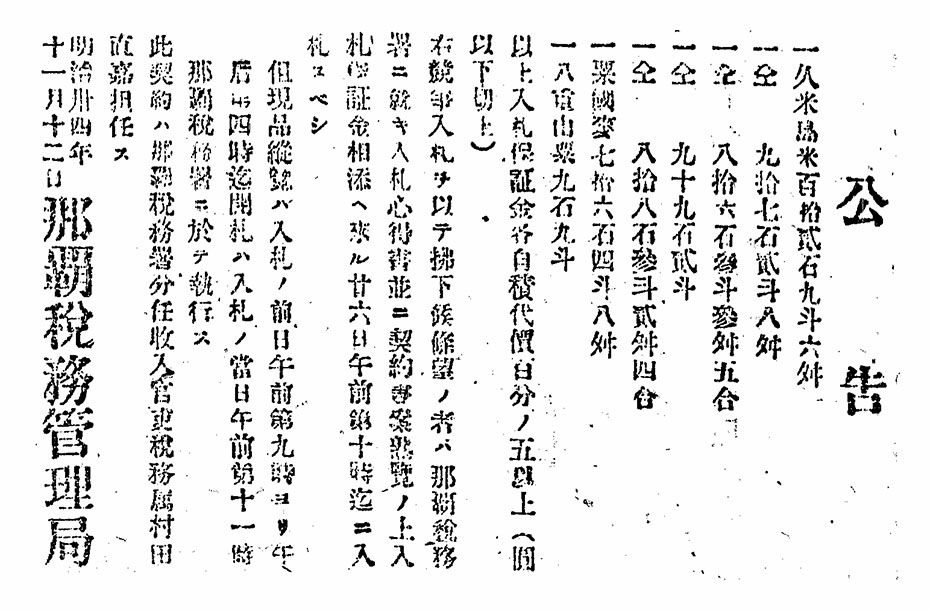 公告
一久米島米百拾貳石九斗六舛
一仝 九拾七石貳斗八舛
一仝 八拾六石參斗參舛五合
一仝 九十九石貳斗
一仝 八拾八石參斗貳舛四合
一粟國麥七拾六石四斗八舛
一八重山粟九石九斗
以上入札保証金各自積代價百分ノ五以上（圓
以下切上）
右競爭入札ヲ以テ拂下候條望ノ者ハ那覇税務
署ニ就キ入札心得書並ニ契約書案熟覽ノ上入
札保証金相添ヘ來ル廿六日午前第十時迄ニ入
札スベシ
但現品縱覽ハ入札ノ前日午前第九時ヨリ午
后第四時迄開札ハ入札ノ當日午前第十一時
那覇税務署ニ於テ執行ス
此契約ハ那覇税務署分任收入官吏税務属村田
直嘉担任ス
明治卅四年
十一月十二日 那覇税務管理局